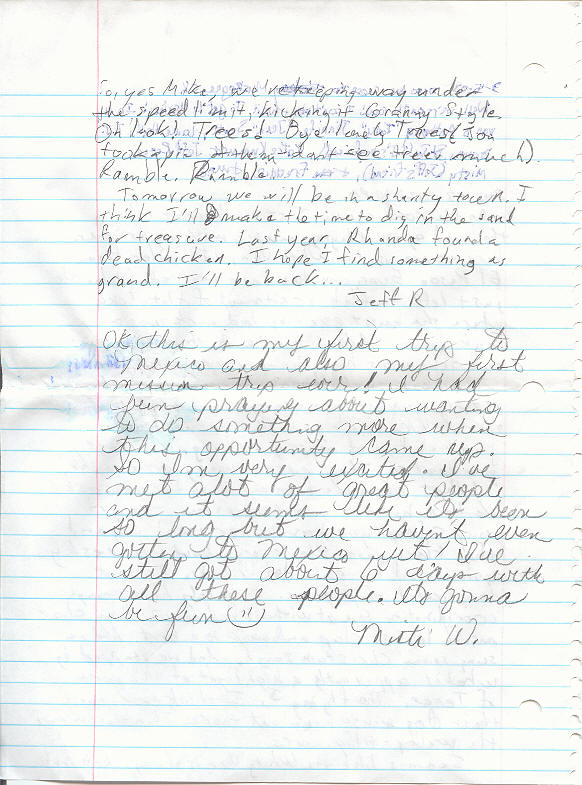 So, yes Mike, we're keeping way under
the speed limit, kickin it Granny Style
Oh look! Trees! Bye lonely Trees (Joe
took a pic of them-don't see trees much).
Ramble. Ramble
Tomorrow we will be in a shanty town. I
think I'll make the time to dig in the sand
for treasure. Last year, Rhonda found a
dead chicken. I hope I find something as
grand. I'll be back...
Jeff R
OK this is my first trip to
mexico and also my first
mission trip ever! I had
been praying about wanting
to do something more when
this opportunity came up.
So I'm very excited. I've
met alot of great people
and it seems like its been
so long but we havn't even
gotten to mexico yet! I've
still got about 6 days with
all these people. It's gonna
be fun
Misti W.